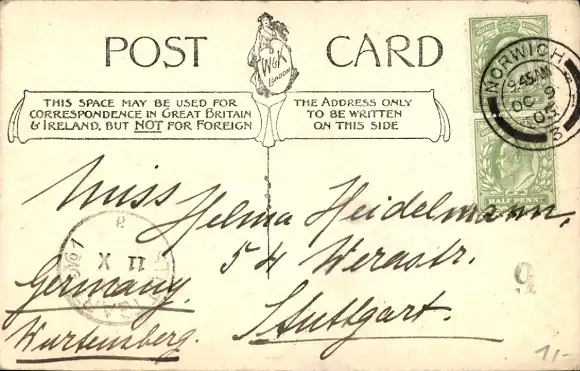 POST CARD
W&K
London
THIS SPACE MAY BE USED FOR
CORRESPONDENCE IN GREAT BRITAIN
& IRELAND, BUT NOT FOR FOREIGN
THE ADDRESS ONLY
TO BE WRITTEN
ON THIS SIDE
NORWICH
9.45AM
OC 9
05
3
HALF PENNY
Miss Helma Heidelmann,
54 Werastr.
Stuttgart.
Germany.
Würtemberg.
No 1
11 X
9
1/-